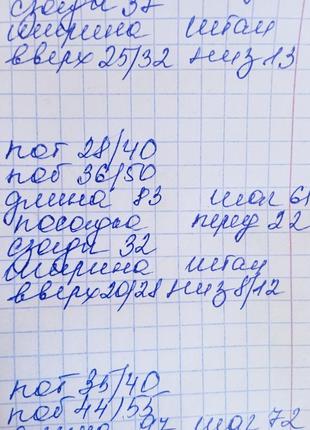 сзади 37
ширина штан
вверх 25/32 низ 13
пот 28/40
поб 36/50
длина 83 шаг 61
посадка перед 22
сзади 32
ширина штан
вверх 20/28 низ 8/12
пот 35/40
поб 44/55
длина 97 шаг 72